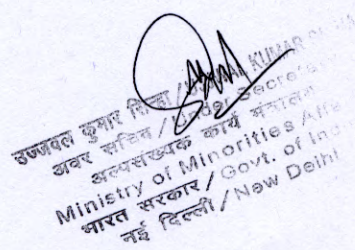 उज्जवल कुमार सिन्हा / UJJWAL KUMAR SINHA
अवर सचिव / Under Secretary
अल्पसंख्यक कार्य मंत्रालय
Ministry of Minorities Affa
भारत सरकार / Govt. of Ind
नई दिल्ली / New Delhi